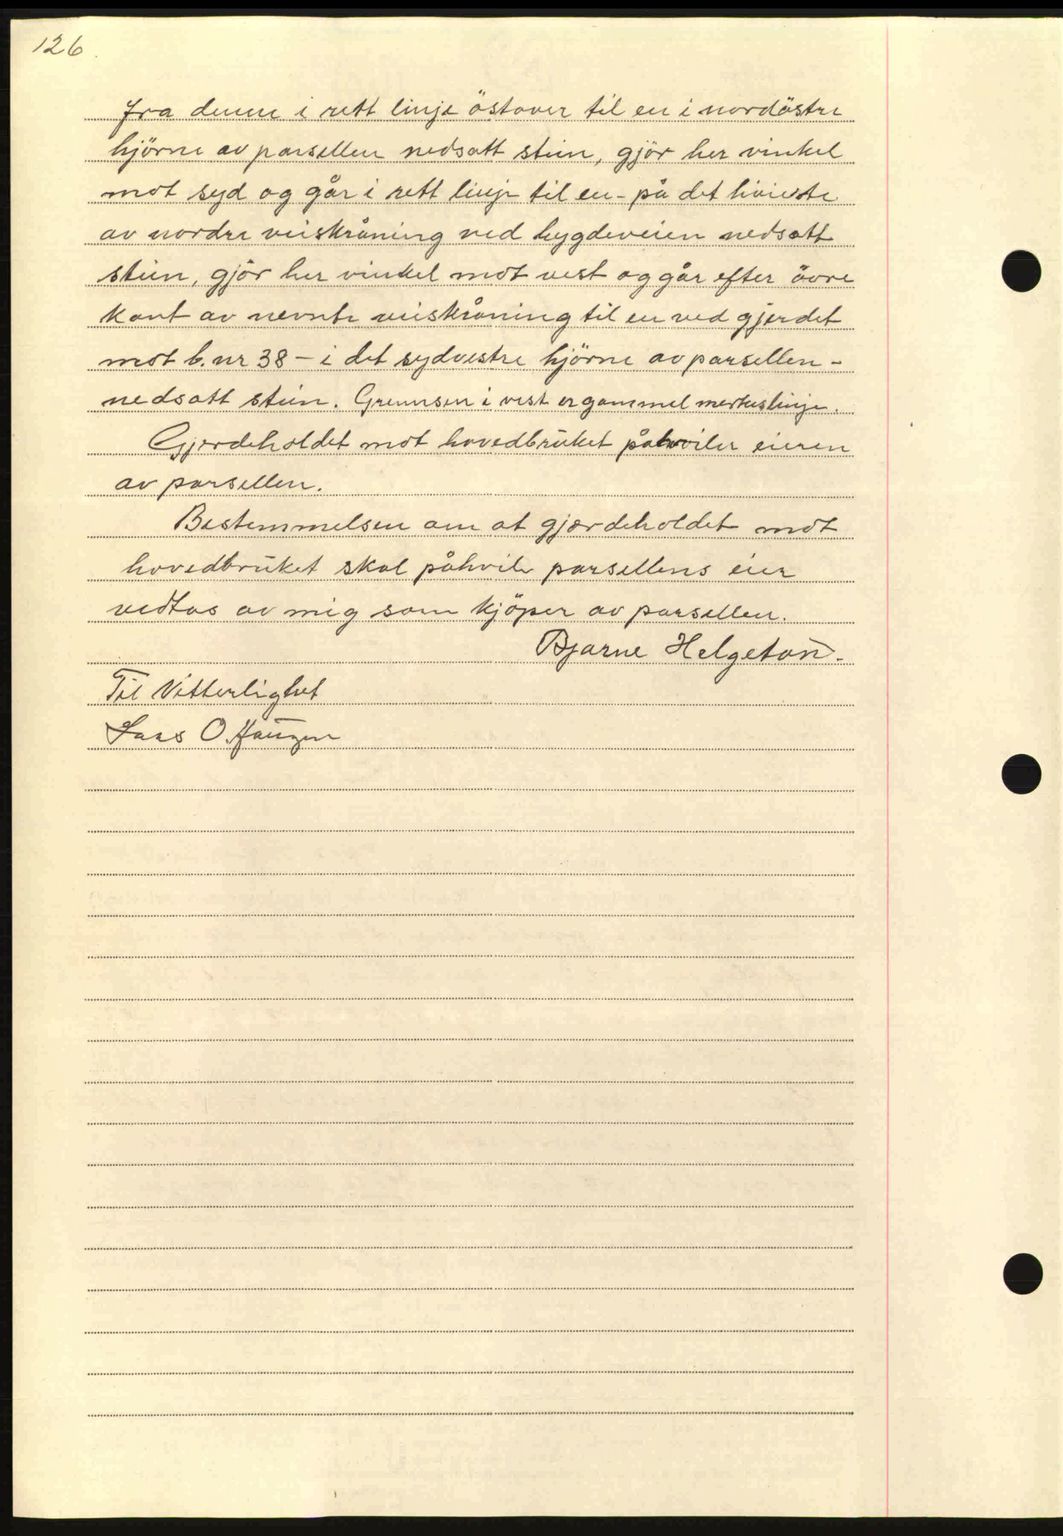 126
fra denne i rett linje östover til en i nordöstre
hjörne av parsellen nedsatt stein, gjör her vinkel
mot syd og går i rett linje til en - på det höieste
av nordre veiskråning ved bygdeveien nedsatt
stein, gjör her vinkel mot vest og går efter övre
kant av nevnte veiskråning til en ved gjerdet
mot b.nr 38 - i det sydvestre hjörne av parsellen -
nedsatt stein. Grensen i vest er gammel merkeslinje.
Gjerdeholdet mot hovedbruket påhviler eieren
av parsellen.
Bestemmelsen om at gjærdeholdet mot
hovedbruket skal påhvile parsellens eier
vedtas av mig som kjöper av parsellen.
Bjarne Helgeton.
Til Vitterlighet
Lars O.